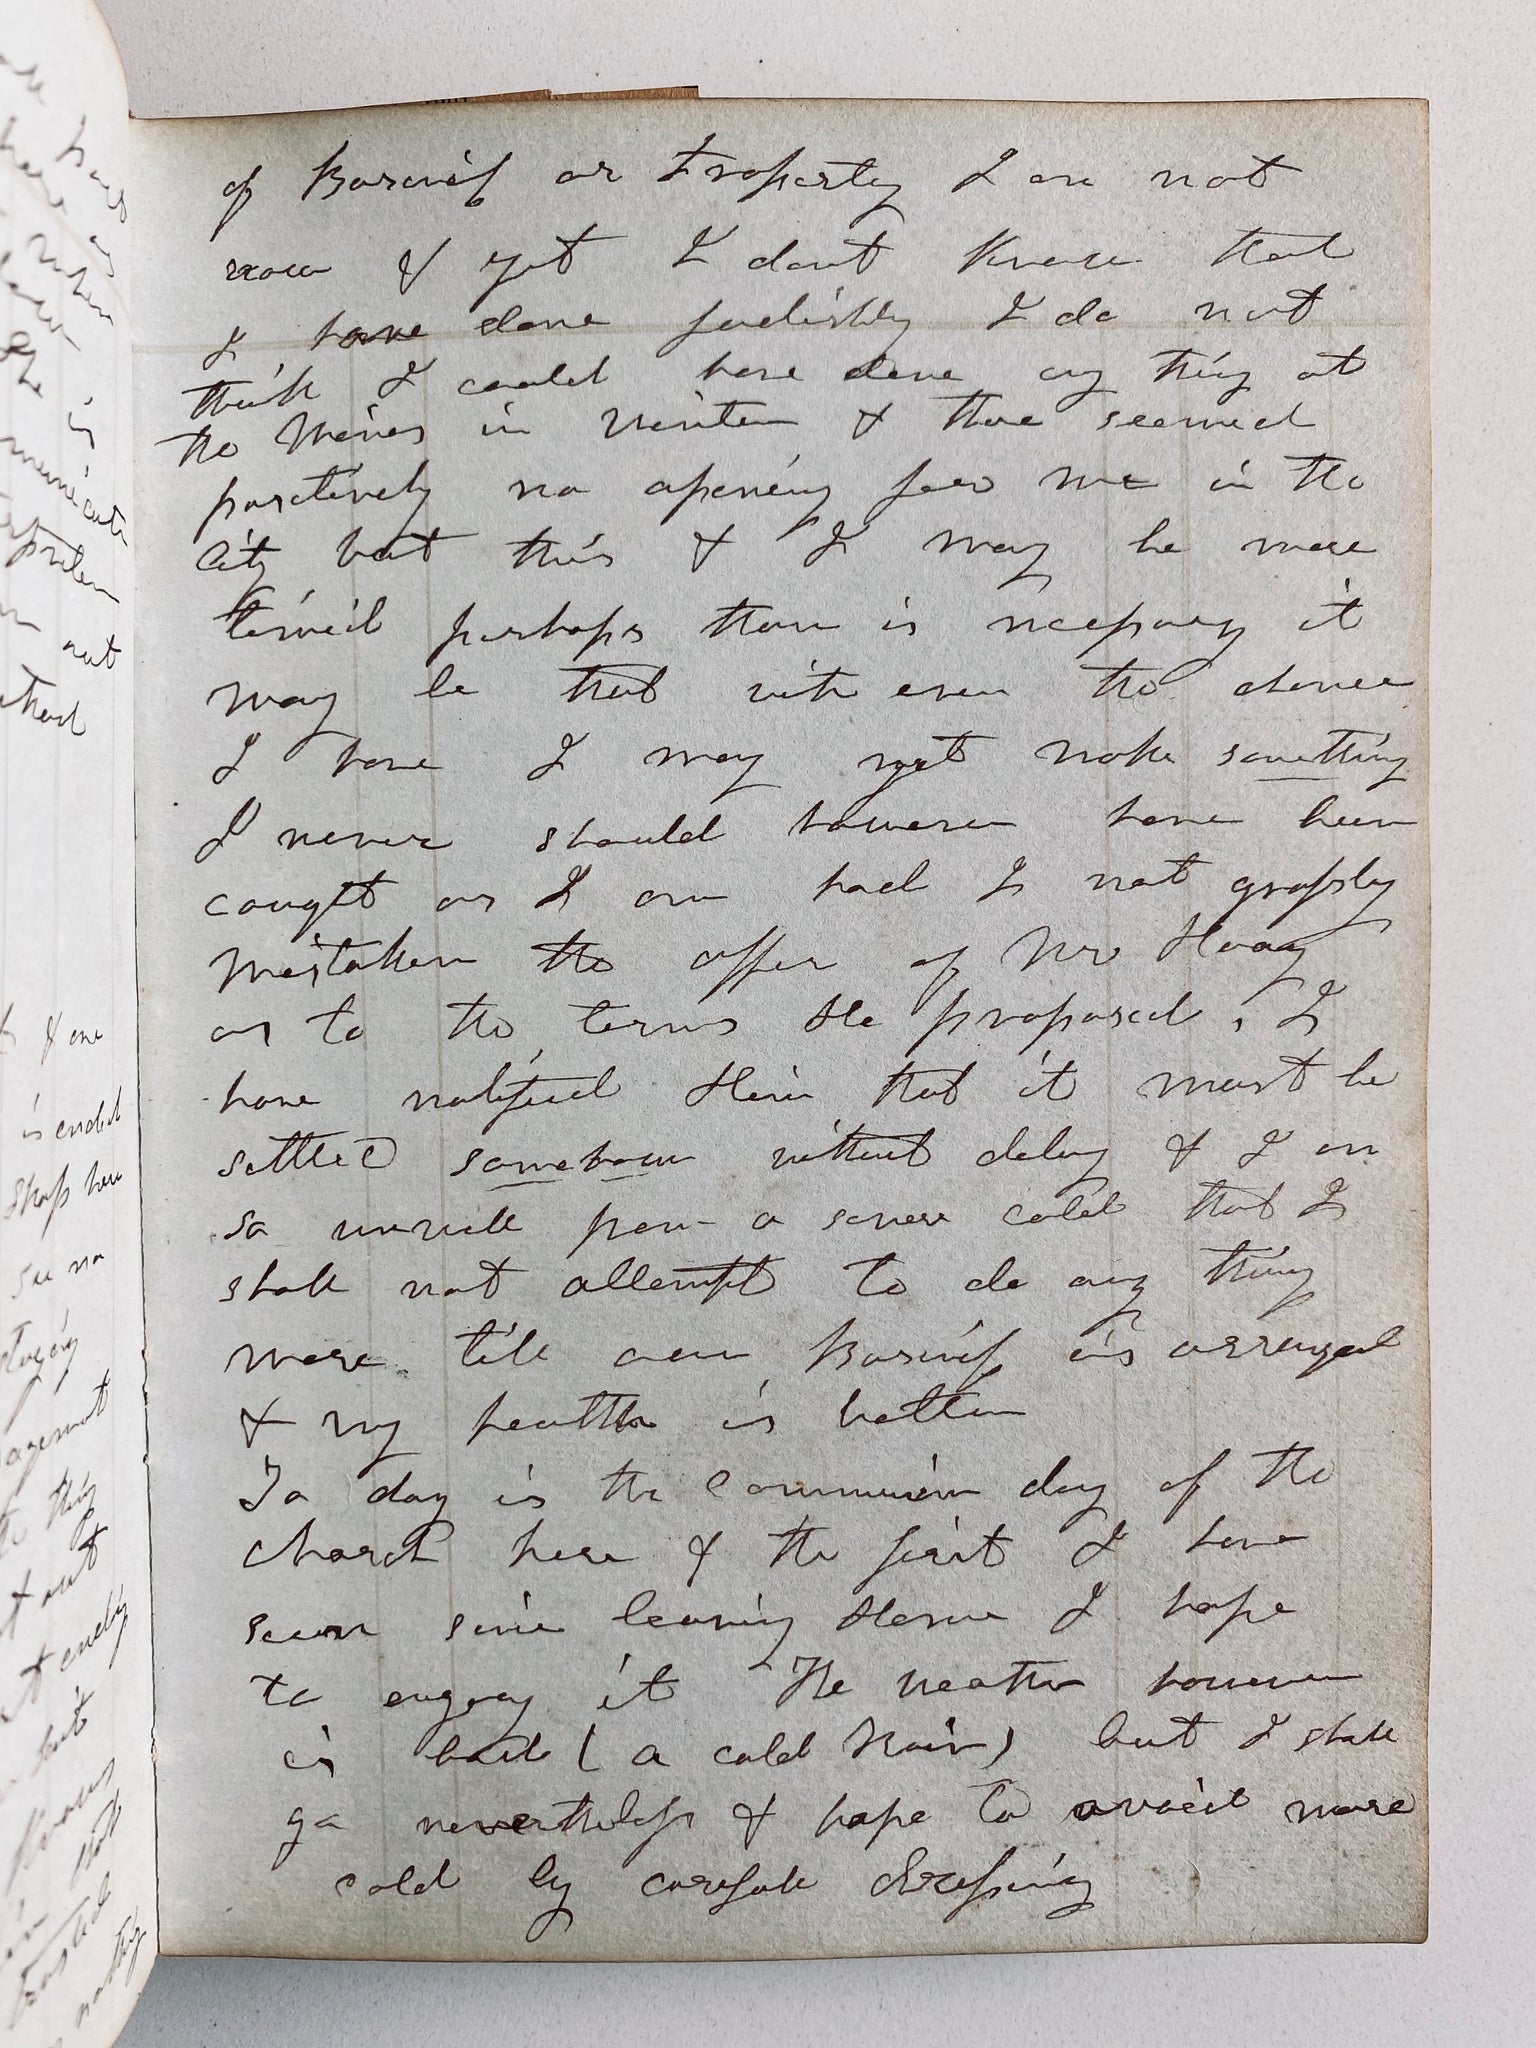 of Business or Property I am not
now & yet I dont know that
I have done foolishly I do not
think I could have done any thing at
the Mines in Winter & there seemed
positively no opening for me in the
City but this & I may be more
timid perhaps than is necessary it
may be that with even the chance
I have I may yet make something
I never should however have been
caught as I am had I not grossly
mistaken the offer of Mr
as to the terms He proposed, I
have notified Him that it must be
settled somehow without delay & I am
so unwell from a severe cold that I
shall not attempt to do any thing
more till our Business is arranged
& my health is better
To day is the Communion day of the
Church here & the first I have
seen since leaving Home I hope
to enjoy it The Weather however
is bad (a cold Rain) but I shall
go nevertheless & hope to avoid more
cold by careful dressing